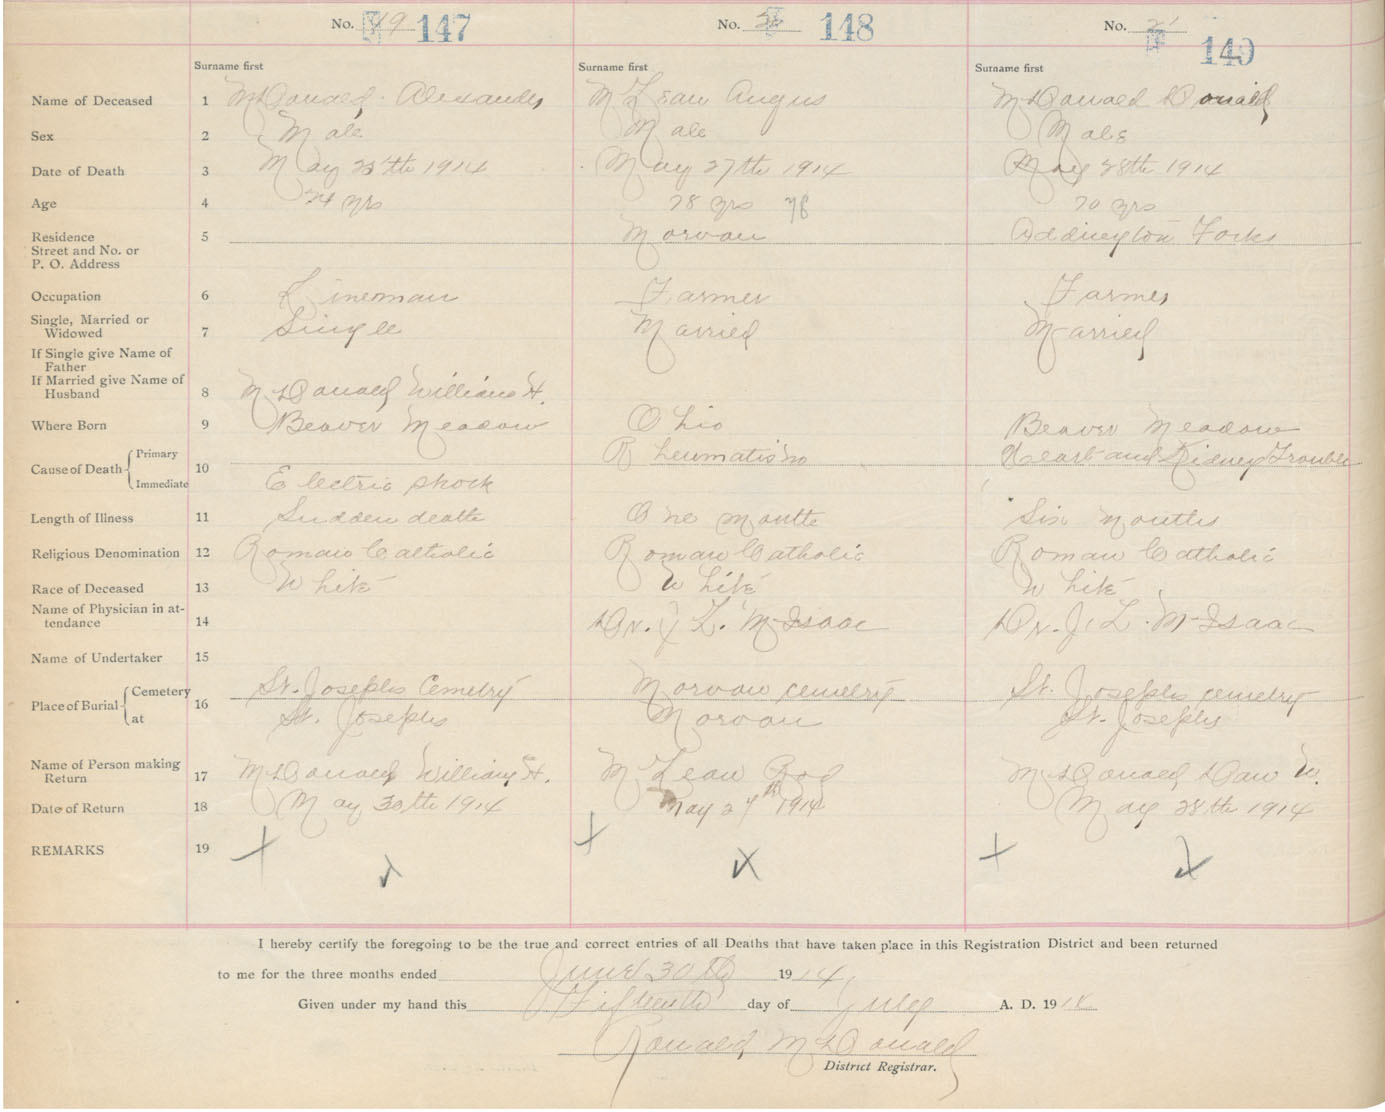 No. 49 147 No. 148 No. 149
Surname first Surname first Surname first
Name of Deceased 1 McDonald Alexander McLean Angus McDonald Donald
Sex 2 Male Male Male
Date of Death 3 May 25th 1914 May 27th 1914 May 28th 1914
Age 4 24 yrs 78 yrs 78 70 yrs
Residence 5 Morvan Addington Forks
Street and No. or
P. O. Address
Occupation 6 Lineman Farmer Farmer
Single, Married or
Widowed 7 Single Married Married
If Single give Name of
Father
If Married give Name of
Husband 8 McDonald William H.
Where Born 9 Beaver Meadow Ohio Beaver Meadow
Cause of Death 10 Primary Rheumatism Heart and Kidney Trouble
Immediate Electric shock
Length of Illness 11 Sudden death One month Six months
Religious Denomination 12 Roman Catholic Roman Catholic Roman Catholic
Race of Deceased 13 White White White
Name of Physician in at-
tendance 14 Dr. J. L. McIsaac Dr. J. L. McIsaac
Name of Undertaker 15
Place of Burial 16 Cemetery St. Josephs Cemetry Morvan cemetry St. Josephs cemetry
at St. Josephs Morvan St. Josephs
Name of Person making
Return 17 McDonald William H. McLean Rod McDonald Dan W.
Date of Return 18 May 30th 1914 May 27th 1914 May 28th 1914
REMARKS 19
I hereby certify the foregoing to be the true and correct entries of all Deaths that have taken place in this Registration District and been returned
to me for the three months ended June 30th 1914
Given under my hand this Fifteenth day of July A. D. 1914
Ronald McDonald
District Registrar.